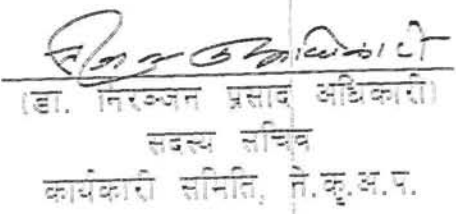 (डा. निरञ्जन प्रसाद अधिकारी)
सदस्य सचिव
कार्यकारी समिति, ने.कृ.अ.प.